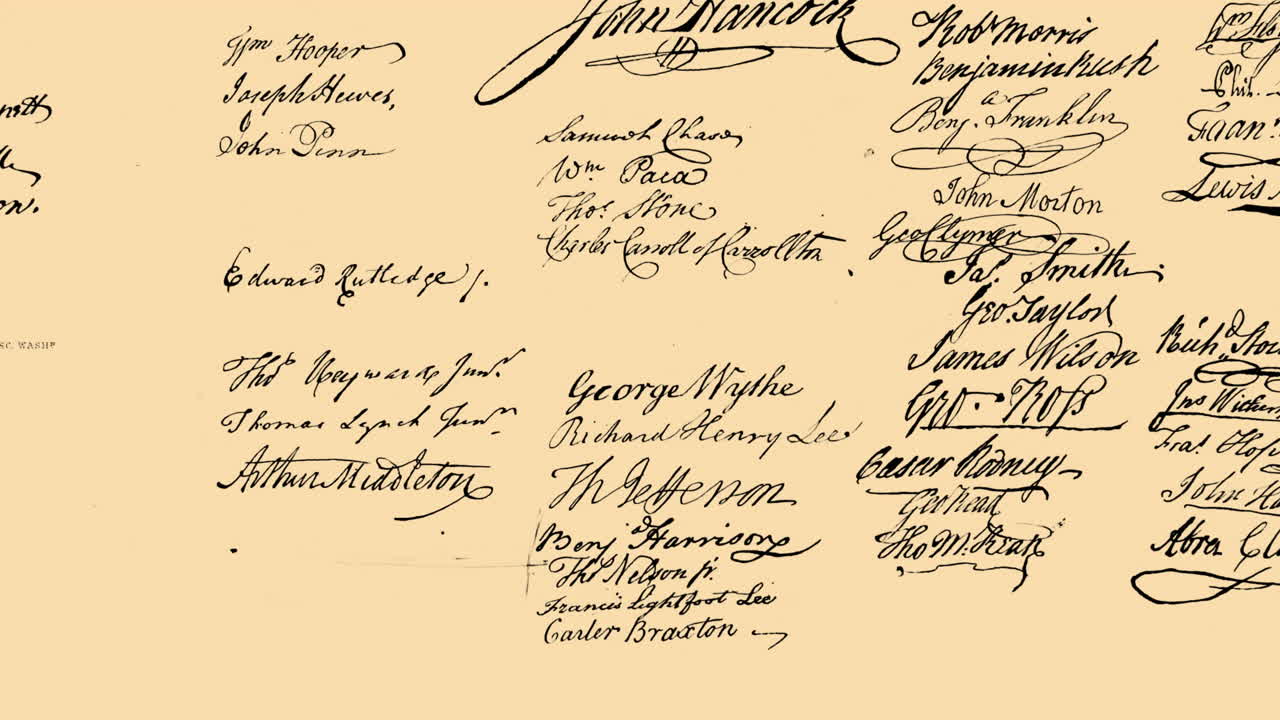 nett
on.
SC. WASHn
Wm Hooper
Joseph Hewes,
John Penn
Edward Rutledge /.
Thos Heyward Junr.
Thomas Lynch Junr.
Arthur Middleton
John Hancock
Samuel Chase
Wm. Paca
Thos. Stone
Charles Carroll of Carrollton
George Wythe
Richard Henry Lee
Th Jefferson
Benj Harrison
Thos Nelson jr.
Francis Lightfoot Lee
Carter Braxton
Robt Morris
Benjamin Rush
Benja. Franklin
John Morton
Geo Clymer
Jas. Smith
Geo. Taylor
James Wilson
Geo. Ross
Caesar Rodney
Geo Read
Tho M. Kean
Wm Flo
Phil. L
Fran.
Lewis
Richd. Stoc
Jno Wither
Fras. Hop
John Ha
Abra Cl